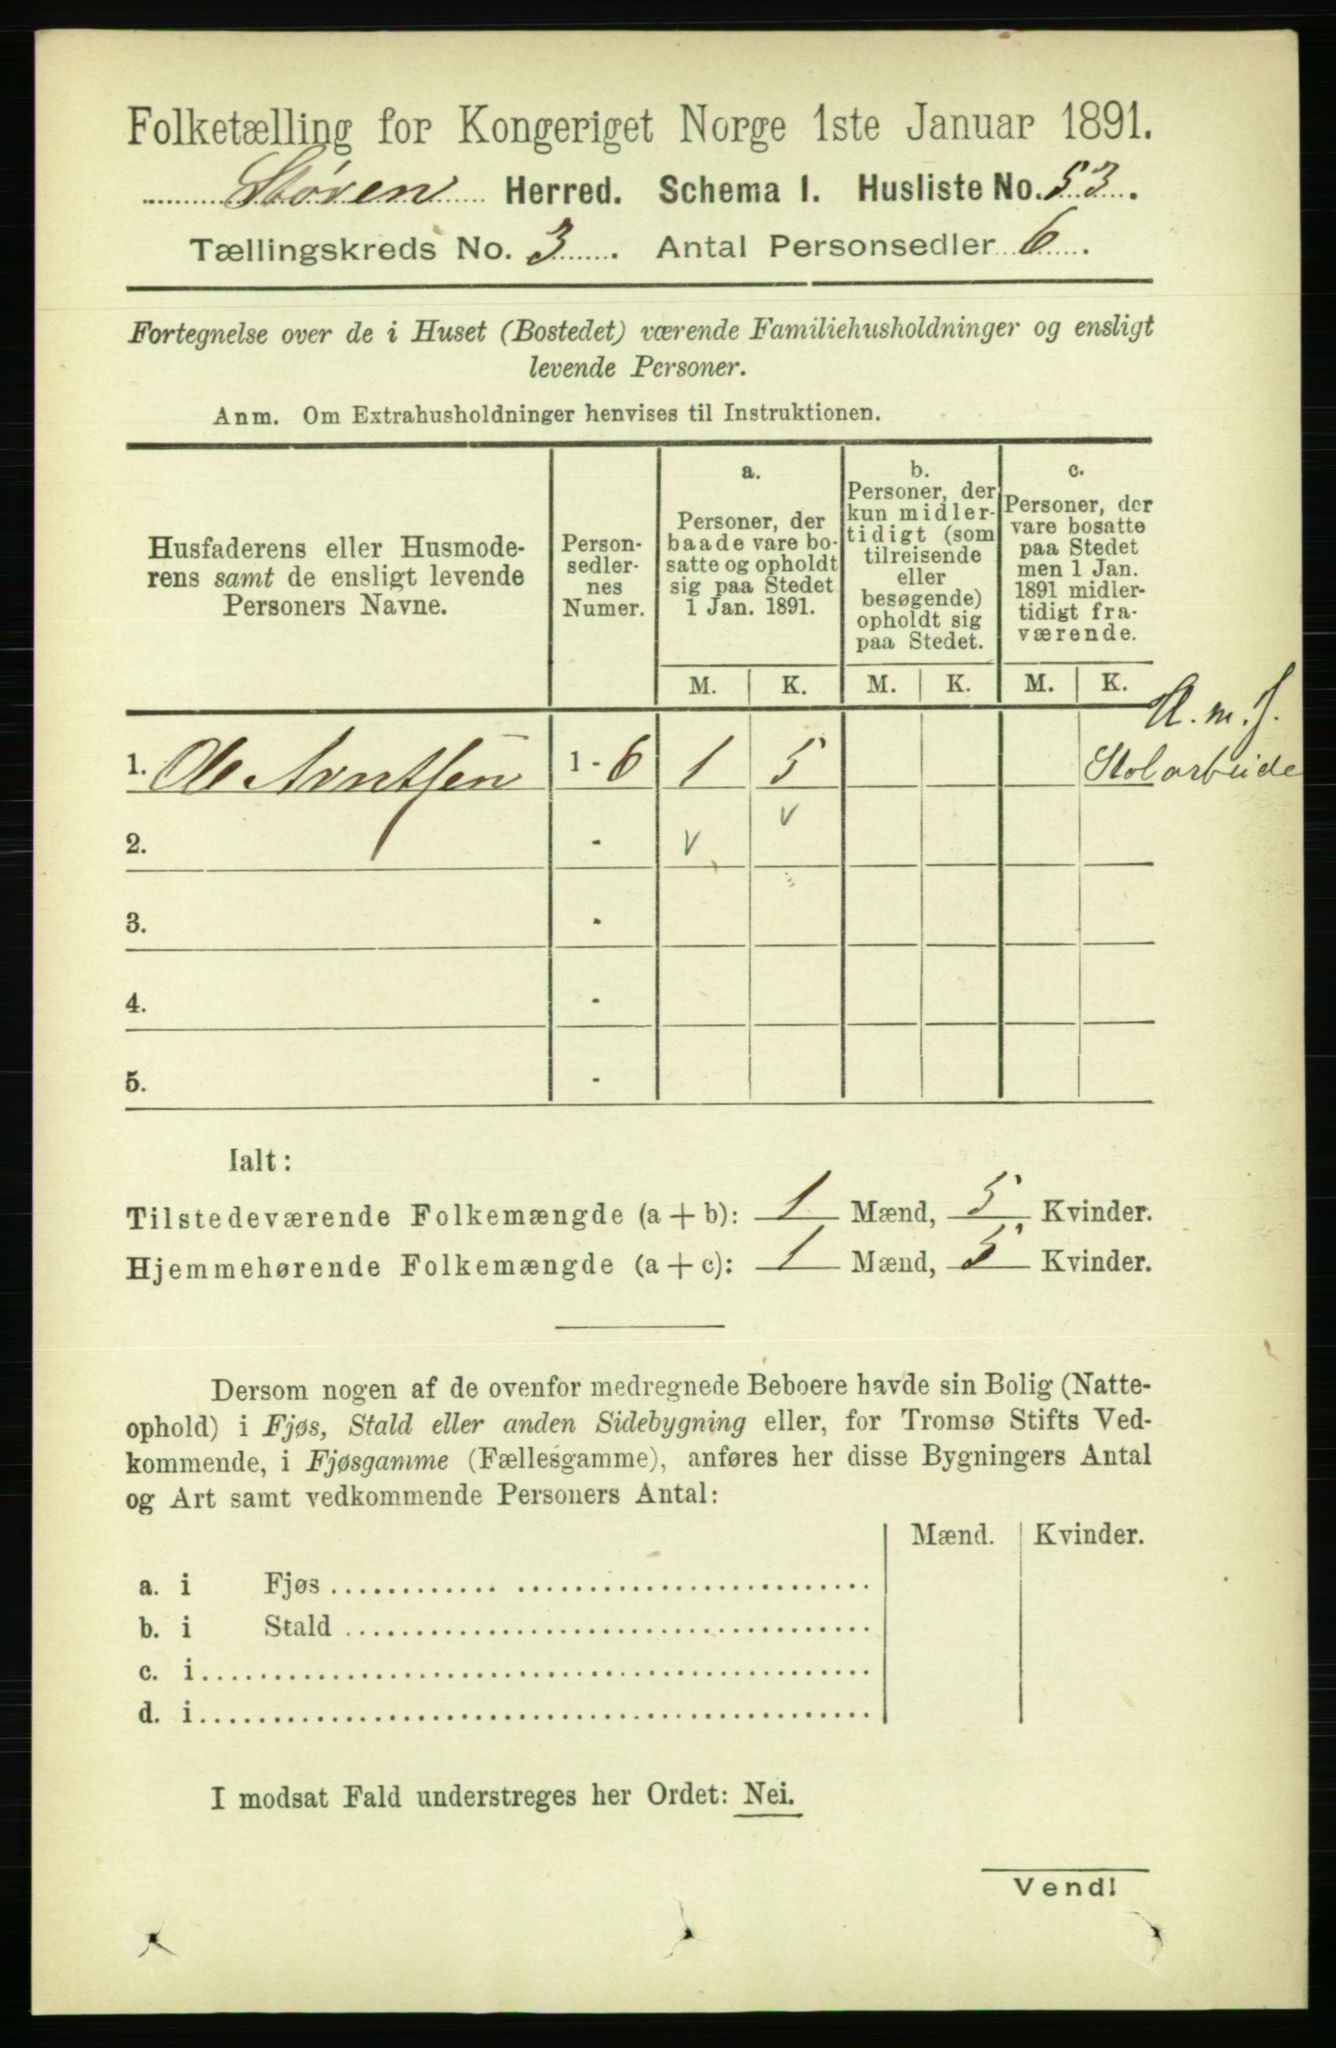 Folketælling for Kongeriget Norge 1ste Januar 1891.
Støren Herred. Schema I. Husliste No. 53.
Tællingskreds No. 3. Antal Personsedler 6.
Fortegnelse over de i Huset (Bostedet) værende Familiehusholdninger og ensligt
levende Personer.
Anm. Om Extrahusholdninger henvises til Instruktionen.
Husfaderens eller Husmode-
rens samt de ensligt levende
Personers Navne.
Person-
sedler-
nes
Numer.
a.
Personer, der
baade vare bo-
satte og opholdt
sig paa Stedet
1 Jan. 1891.
b.
Personer, der
kun midler-
tidigt (som
tilreisende
eller
besøgende)
opholdt sig
paa Stedet.
c.
Personer, der
vare bosatte
paa Stedet
men 1 Jan.
1891 midler-
tidigt fra-
værende.
M. K. M. K. M. K.
A. m. J.
1. Ole Arntsen 1 - 6 1 5 Stolarbeide
2. - v v
3. -
4. -
5. -
Ialt:
Tilstedeværende Folkemængde (a + b): 1 Mænd, 5 Kvinder.
Hjemmehørende Folkemængde (a + c): 1 Mænd, 5 Kvinder.
Dersom nogen af de ovenfor medregnede Beboere havde sin Bolig (Natte-
ophold) i Fjøs, Stald eller anden Sidebygning eller, for Tromsø Stifts Ved-
kommende, i Fjøsgamme (Fællesgamme), anføres her disse Bygningers Antal
og Art samt vedkommende Personers Antal:
Mænd. Kvinder.
a. i Fjøs
b. i Stald
c. i
d. i
I modsat Fald understreges her Ordet: Nei.
Vend!